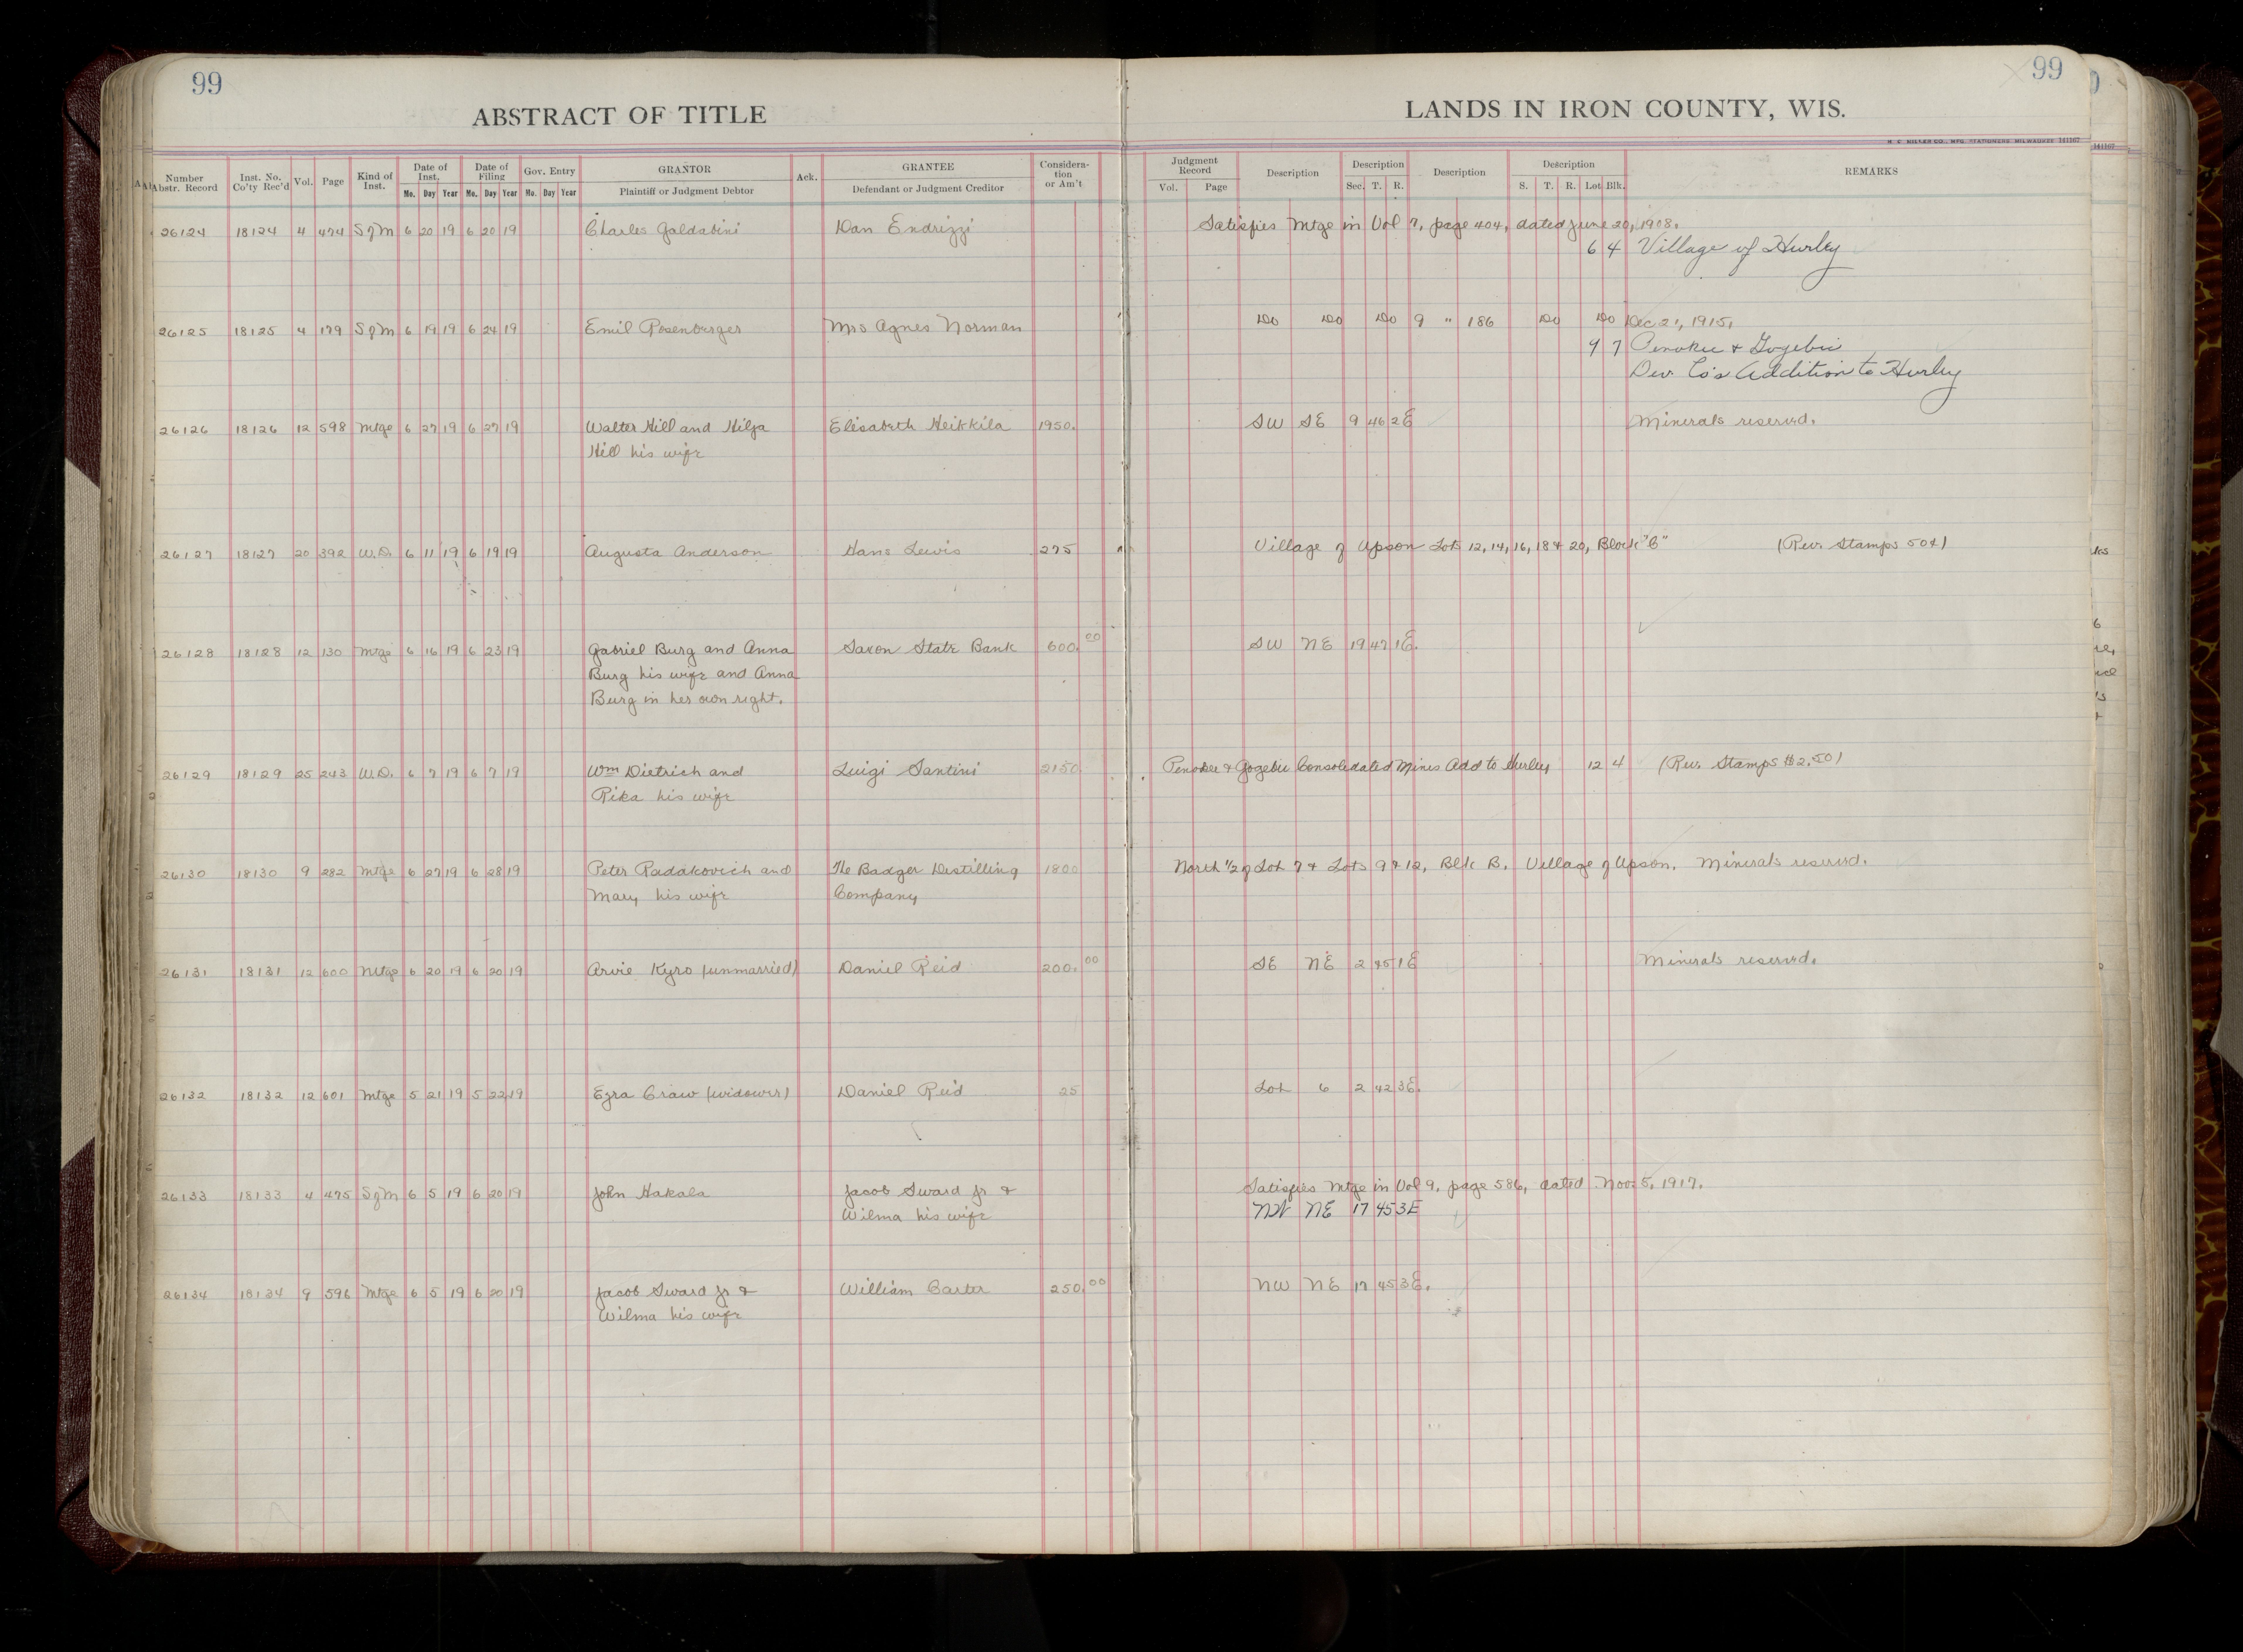 99
99
ABSTRACT OF TITLE
LANDS IN IRON COUNTY, WIS.
H. C. MILLER CO., MFG. STATIONERS MILWAUKEE 141167
Number Abstr. Record | Inst. No. Co'ty Rec'd | Vol. | Page | Kind of Inst. | Date of Inst. Mo. Day Year | Date of Filing Mo. Day Year | Gov. Entry Mo. Day Year | GRANTOR Plaintiff or Judgment Debtor | Ack. | GRANTEE Defendant or Judgment Creditor | Considera-tion or Am't | Judgment Record Vol. Page | Description | Description Sec. T. R. | Description | Description S. T. R. Lot Blk. | REMARKS
26124 18124 4 474 S of M 6 20 19 6 20 19 Charles Galdabini Dan Endrizzi Satisfies Mtge in Vol 7, page 404, dated June 20, 1908.
6 4 Village of Hurley
26125 18125 4 179 S of M 6 19 19 6 24 19 Emil Rosenberger Mrs Agnes Norman Do Do Do 9 " 186 Do Do Dec 21, 1915.
9 7 Penokee & Gogebic
Dev. Co's Addition to Hurley
26126 18126 12 598 Mtge 6 27 19 6 27 19 Walter Hill and Hilja Elisabeth Heikkila 1950. SW SE 9 46 2E Minerals reserved.
Hill his wife
26127 18127 20 392 W.D. 6 11 19 6 19 19 Augusta Anderson Hans Lewis 275 Village of Upson Lots 12, 14, 16, 18 & 20, Block "C" (Rev. Stamps 50¢)
26128 18128 12 130 Mtge 6 16 19 6 23 19 Gabriel Burg and Anna Saxon State Bank 600.00 SW NE 19 47 1E.
Burg his wife and Anna
Burg in her own right.
26129 18129 25 243 W.D. 6 7 19 6 7 19 Wm Dietrich and Luigi Santini 2150 Penokee & Gogebic Consolidated Mines Add to Hurley, 12 4 (Rev. Stamps $2.50)
Rika his wife
26130 18130 9 282 Mtge 6 27 19 6 28 19 Peter Radakovich and The Badger Distilling 1800 North 1/2 of Lot 7 & Lots 9 & 12, Blk B. Village of Upson. Minerals reserved.
Mary his wife Company
26131 18131 12 600 Mtge 6 20 19 6 20 19 Arvie Kyro (unmarried) Daniel Reid 200.00 SE NE 2 45 1E Minerals reserved.
26132 18132 12 601 Mtge 5 21 19 5 22 19 Ezra Craw (widower) Daniel Reid 25 Lot 6 2 42 3E.
26133 18133 4 475 S of M 6 5 19 6 20 19 John Hakala Jacob Sward Jr & Satisfies Mtge in Vol 9, page 586, dated Nov. 5, 1917.
Wilma his wife NW NE 17 45 3E
26134 18134 9 596 Mtge 6 5 19 6 20 19 Jacob Sward Jr & William Carter 250.00 NW NE 17 45 3E.
Wilma his wife